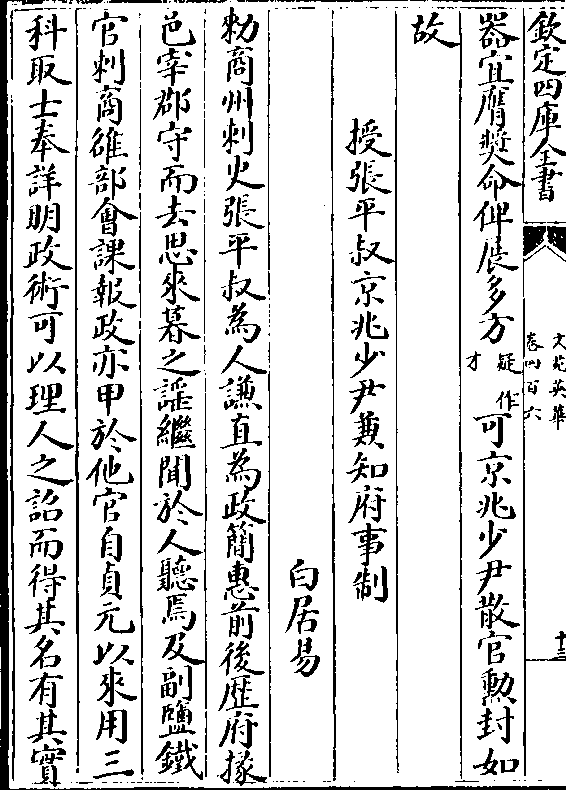 欽定四庫全書
文苑英華
卷四百六
十三
器宜膺奬命俾展多方疑作才可京兆少尹散官勲封如
故
授張平叔京兆少尹兼知府事制
白居易
勅商州刺史張平叔為人謙直為政簡惠前後歴府掾
邑宰郡守而去思來暮之謡繼聞於人聽焉及副鹽鐵
官刺商雒部會課報政亦甲於他官自貞元以來用三
科取士奉詳明政術可以理人之詔而得其名有其實